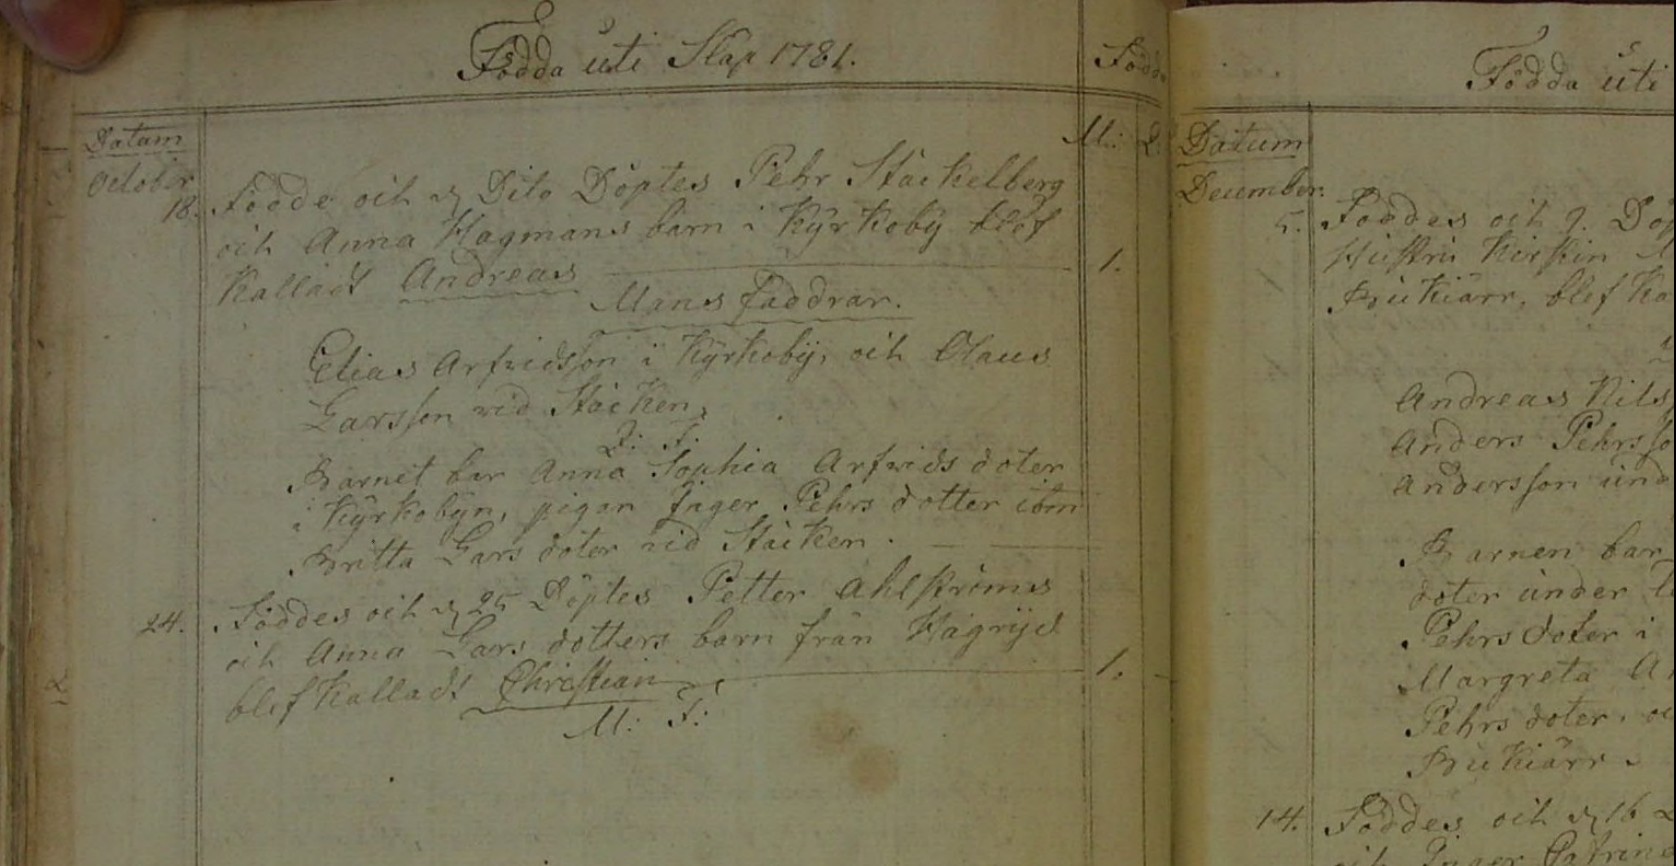 Födda uti Slap 1781.
Födda
M: Q:
Datum
October
18. Födde och d Dito Döptes Pehr Stäckelberg
och Anna Hagmans barn i Kÿrkobÿ blef
Kalladt Andreas 1.
Mans faddrar.
Elias Arfvidsson i Kÿrkobÿ, och Olaus
Larsson vid Stäcken,
Q: F:
Barnet bar Anna Sophia Arfvids doter
i Kÿrkobÿn, pigan Inger Pehrs dotter ibm
Britta Lars doter vid Stäcken.
24. Föddes och d 25 Döptes Petter Ahlströms
och Anna Lars dotters barn från Hagrÿd
blef Kalladt Christian 1.
M: F:
Födda uti
Datum
December.
5. Föddes och 9. Döp
Hustru Kirstin
Bukiärr, blef Ka
Andreas Nils
Anders Pehrsso
Andersson und
Barnen bar
doter under
Pehrs doter i
Margreta A
Pehrs doter, oc
Bukiärr.
14. Föddes och d 16
och Inger Catrin